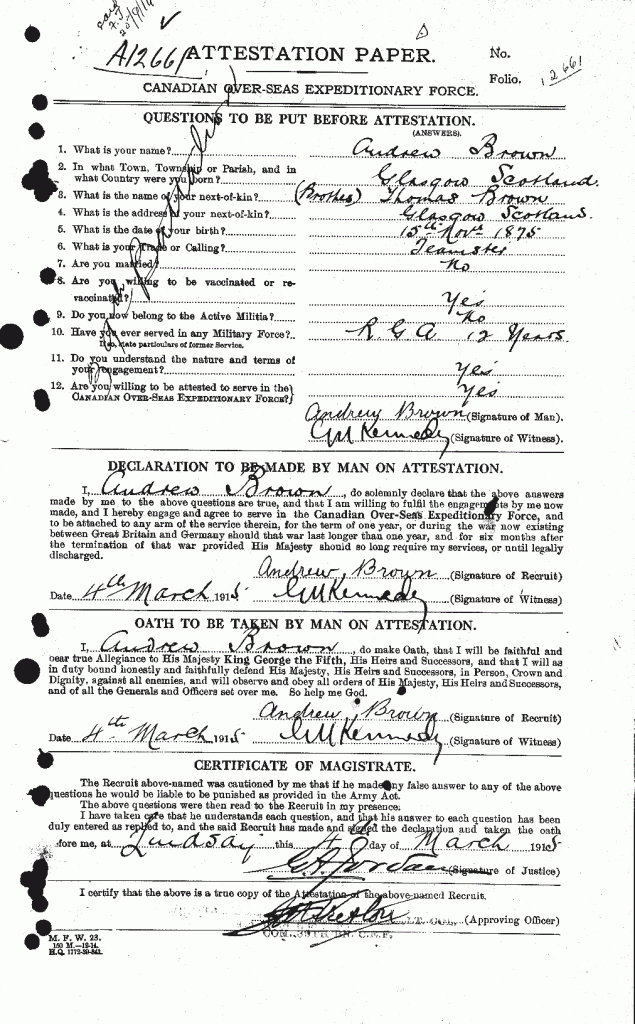 A12661 ATTESTATION PAPER. No.
Folio. 12661
CANADIAN OVER-SEAS EXPEDITIONARY FORCE.
QUESTIONS TO BE PUT BEFORE ATTESTATION.
(ANSWERS).
1. What is your name? Andrew Brown
2. In what Town, Township or Parish, and in
what Country were you born? Glasgow Scotland.
3. What is the name of your next-of-kin? (Brother) Thomas Brown
4. What is the address of your next-of-kin? Glasgow Scotland.
5. What is the date of your birth? 15th Novr 1875
6. What is your Trade or Calling? Teamster
7. Are you married? No
8. Are you willing to be vaccinated or re-
vaccinated? Yes
9. Do you now belong to the Active Militia? No
10. Have you ever served in any Military Force? R G A 12 Years
If so, state particulars of former Service.
11. Do you understand the nature and terms of
your engagement? Yes
12. Are you willing to be attested to serve in the Yes
CANADIAN OVER-SEAS EXPEDITIONARY FORCE?
Andrew Brown (Signature of Man).
GM Kennedy (Signature of Witness).
DECLARATION TO BE MADE BY MAN ON ATTESTATION.
I, Andrew Brown, do solemnly declare that the above answers
made by me to the above questions are true, and that I am willing to fulfil the engagements by me now
made, and I hereby engage and agree to serve in the Canadian Over-Seas Expeditionary Force, and
to be attached to any arm of the service therein, for the term of one year, or during the war now existing
between Great Britain and Germany should that war last longer than one year, and for six months after
the termination of that war provided His Majesty should so long require my services, or until legally
discharged.
Andrew Brown (Signature of Recruit)
Date 4th March 1915 GM Kennedy (Signature of Witness)
OATH TO BE TAKEN BY MAN ON ATTESTATION.
I, Andrew Brown, do make Oath, that I will be faithful and
bear true Allegiance to His Majesty King George the Fifth, His Heirs and Successors, and that I will as
in duty bound honestly and faithfully defend His Majesty, His Heirs and Successors, in Person, Crown and
Dignity, against all enemies, and will observe and obey all orders of His Majesty, His Heirs and Successors,
and of all the Generals and Officers set over me. So help me God.
Andrew Brown (Signature of Recruit)
Date 4th March 1915 GM Kennedy (Signature of Witness)
CERTIFICATE OF MAGISTRATE.
The Recruit above-named was cautioned by me that if he made any false answer to any of the above
questions he would be liable to be punished as provided in the Army Act.
The above questions were then read to the Recruit in my presence.
I have taken care that he understands each question, and that his answer to each question has been
duly entered as replied to, and the said Recruit has made and signed the declaration and taken the oath
before me, at Lindsay this 4 day of March 1915
(Signature of Justice)
I certify that the above is a true copy of the Attestation of the above-named Recruit.
LT. COL. (Approving Officer)
COM. 39TH BN. C.E.F.
M. F. W. 23.
150 M.—12-14.
H.Q. 1772-39-841.